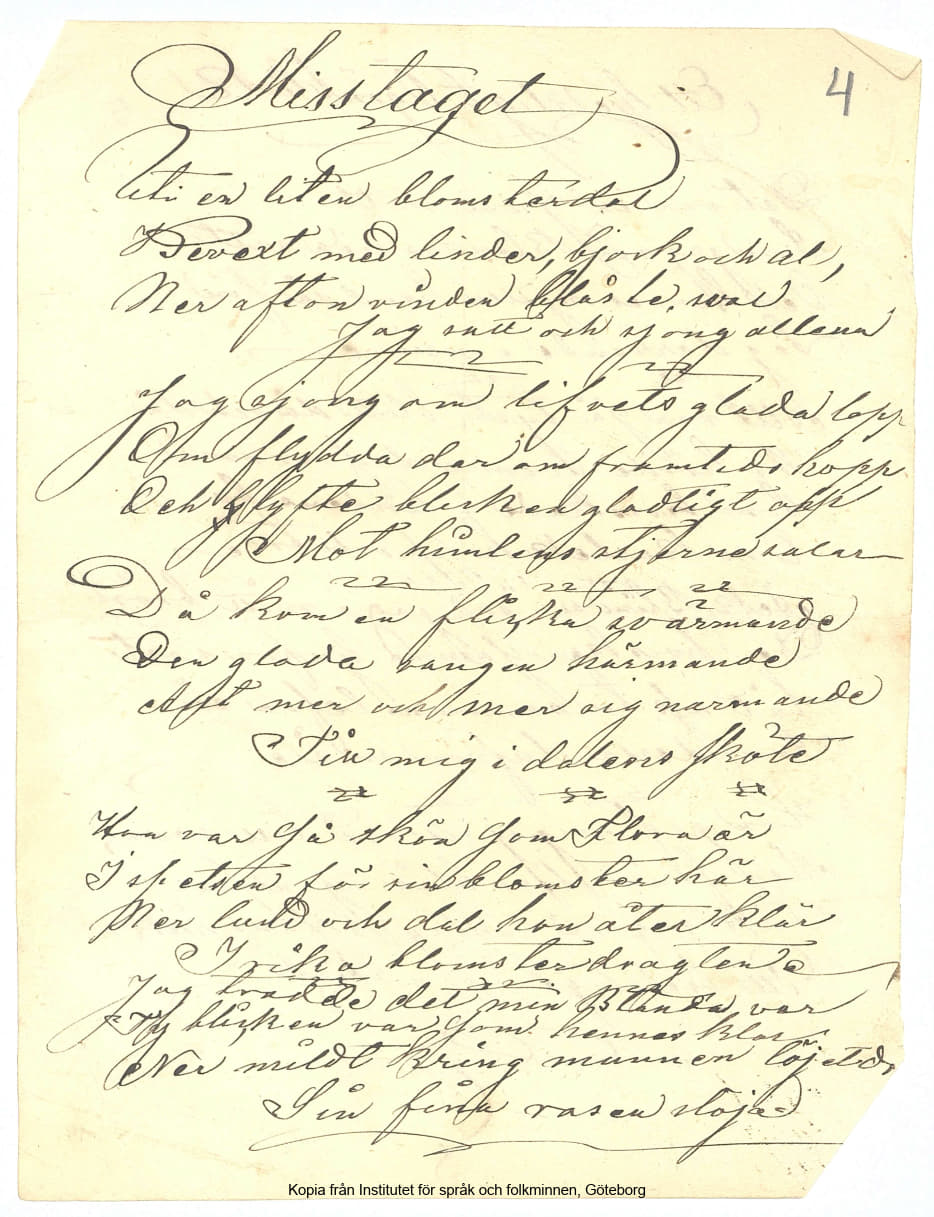 Misstaget
4
Uti en liten blomsterdal
Bevext med linder, bjork och al,
Ner afton vinden blåste sval
Jag satt och sjöng allena
Jag sjöng om lifvets glada lopp
Om flydda dar om framtids hopp
Och lyfte blicken gladligt opp
Mot himlens stjerne salar
Då kom en flicka svärmande
Den glada sangen härmande
Alt mer och mer sig narmande
Till mig i dalens sköte
Hon var så skön som Flora är
I spetsen för sin blomster här
Ner lund och dal hon åter klär
I rika blomsterdragten
Jag trodde det min Blanda var
Ty blicken var som hennes klar
Ner mildt kring munnen löjet
Sin fina rosen slöja
Kopia från Institutet för språk och folkminnen, Göteborg